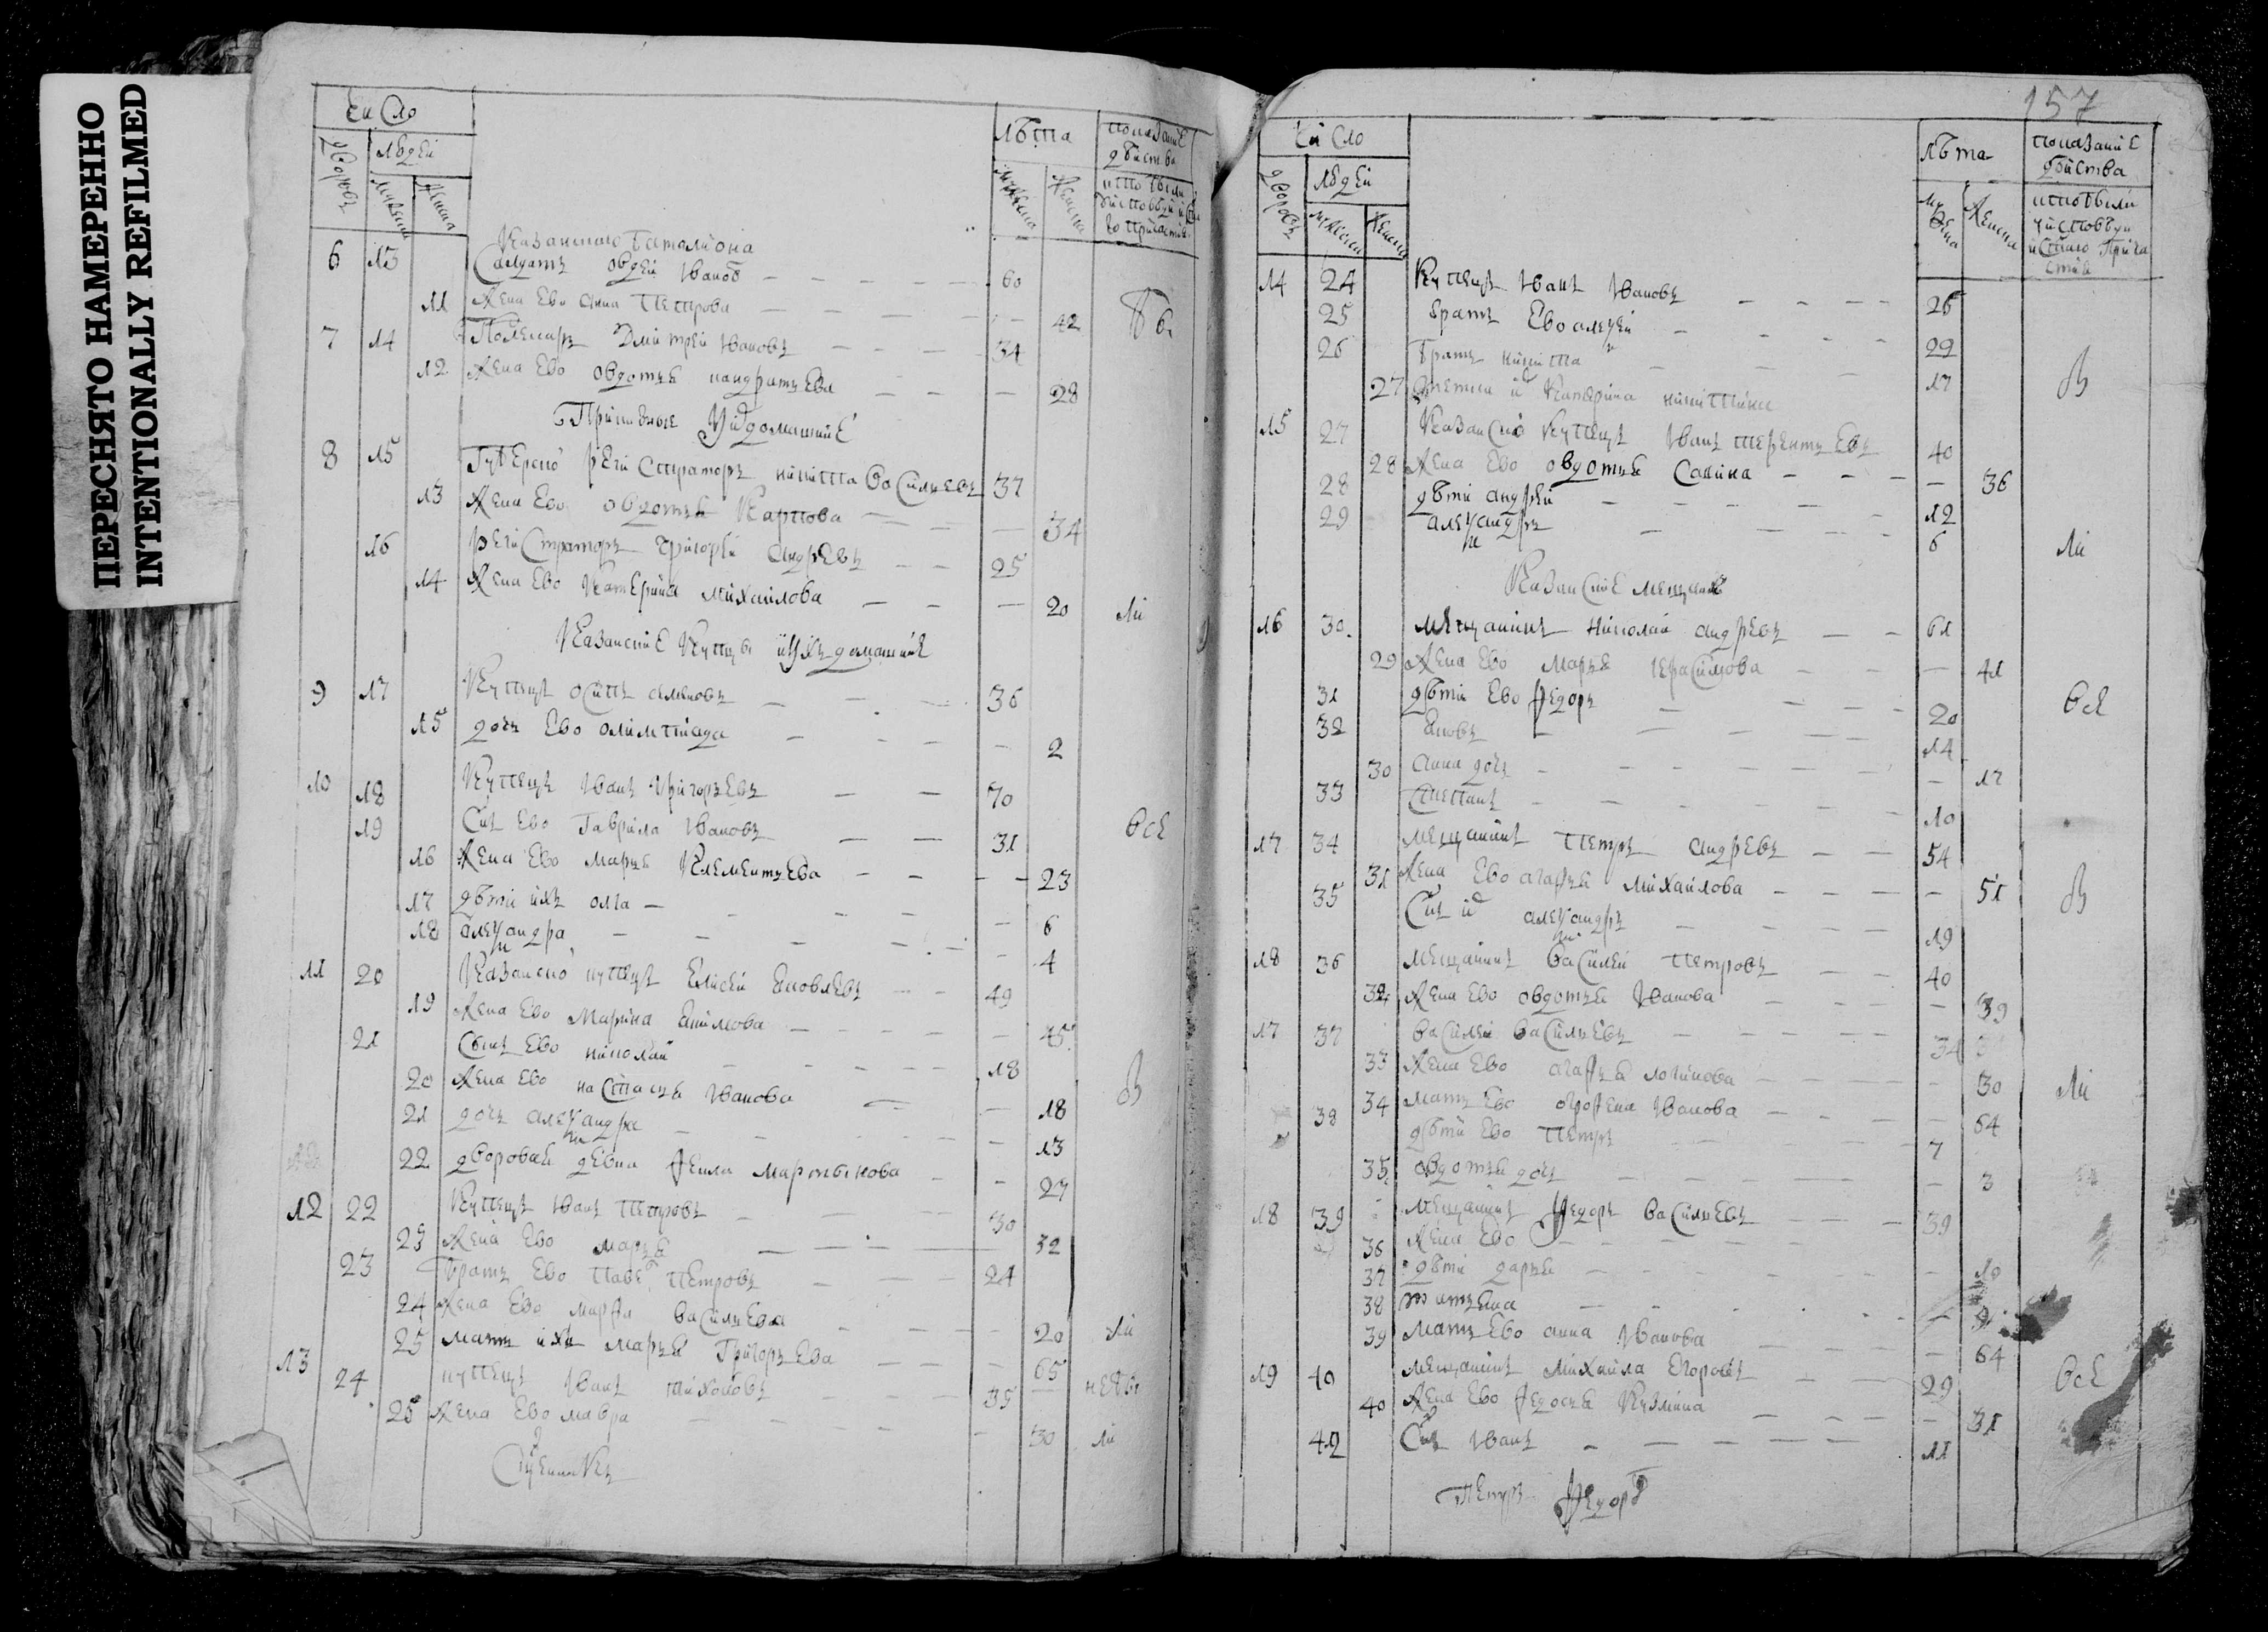 ПЕРЕСНЯТО НАМЕРЕННО
INTENTIONALLY REFILMED
157
Число лѣта показание
дѣйства
дворовъ людей
мужеска женска мужеска женска
Казанскаго баталиона
6 13 Салдатъ Овдей Иванов 60
11 Жена Ево Анна Петрова 42
7 14 Дмитрей Ивановъ 34
12 Жена Ево Овдотья Кандратьева 28
Приказныя и домашние
8 15 Губернско регистраторъ Никита Васильевъ 37
13 Жена Ево Овдотья Карпова 34
16 регистраторъ Григорей Андревъ 25
14 Жена Ево Катерина Михайлова 20 ли
Казанские Купцы и ихъ домашние
9 17 Купецъ Осипъ Семеновъ 36
15 дочь Ево Олимпиада 2
10 18 Купецъ Иванъ Григорьевъ 70
19 Сын Ево Гаврила Ивановъ 31 все
16 Жена Ево Марья Клементьева 23
17 дѣти ихъ Олга 6
18 Александра 4
11 20 Казанско купецъ Елисей Яковлевъ 49
19 Жена Ево Марина Акимова 45
21 Сынъ Ево Николай 18
20 Жена Ево Настасья Иванова 18
21 дочь Александра 13
22 дворовая девка Фекла Мартынова 27
12 22 Купецъ Иванъ Петровъ 30
23 Жена Ево Марья 32
23 братъ Ево Павел Петровъ 24
24 Жена Ево Марфа Васильева 20 ли
25 мать ихъ Марья Григорьева 65
13 24 купецъ Иванъ Тихоновъ 35
26 Жена Ево Мавра 30 ли
Священникъ
Число лѣта показание
дѣйства
дворовъ людей
мужеска женска мужеска женска
14 24 Купецъ Иванъ Ивановъ 26
25 братъ Ево Алексей 29
26 братъ Никита 17
27 Катерина Никитина
15 27 Казанско купецъ Иванъ Терентьевъ 40
28 Жена Ево Овдотья Савина 36
28 дѣти Андрей 12
29 Александръ 6 ли
Казанские мещаня
16 30 мещанинъ Николай Андревъ 61
29 Жена Ево Марья Герасимова 41
31 дѣти Ево Федоръ 20 все
32 Яковъ 14
30 Анна дочь 17
33 Степанъ 10
17 34 мещанинъ Петръ Андревъ 54
31 Жена Ево Агафья Михайлова 51
35 Сынъ Александръ 19
18 36 мещанинъ Василей Петровъ 40
32 Жена Ево Овдотья Иванова 39
17 37 Василей Васильевъ 34
33 Жена Ево Агафья Логинова 30 ли
34 мать Ево Огрофена Иванова 64
38 дѣти Ево Петръ 7
35 Овдотья дочь 3
18 39 мещанинъ Федоръ Васильевъ 39
36 Жена Ево
37 дѣти Дарья 10
38 Татьяна
39 мать Ево Анна Иванова 64
19 40 мещанинъ Михайла Егоровъ 29 все
40 Жена Ево Федосья Кузмина 31
42 Сынъ Иванъ 11
Петръ Федоров